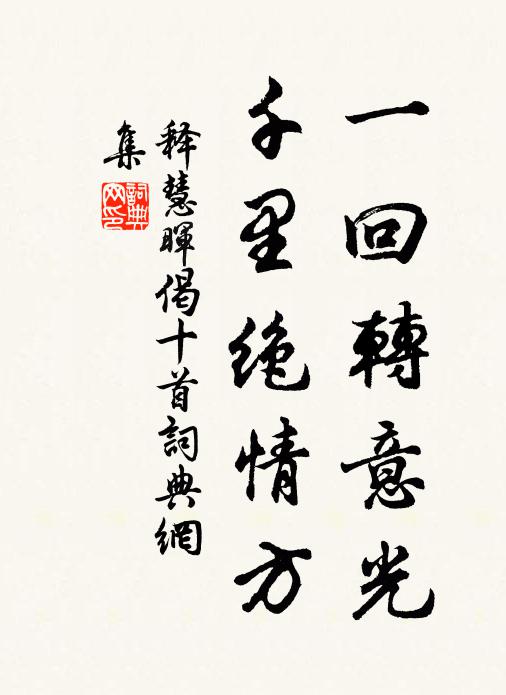 一回轉意光
千里絶情方
释慧暉偈十首詞典網
集
詞典網印